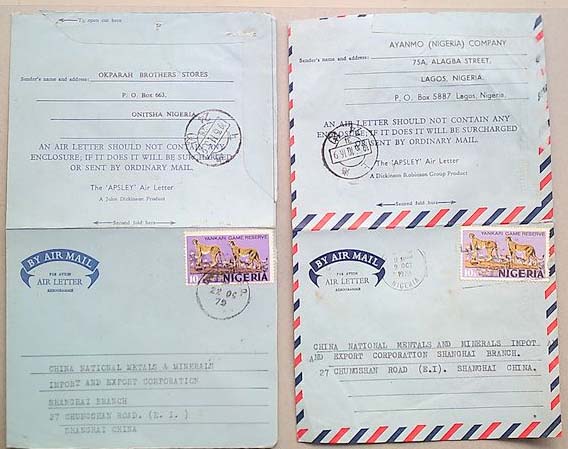 To open cut here
Sender's name and address:
OKPARAH BROTHERS STORES
P. O. Box 663,
ONITSHA NIGERIA.
AN AIR LETTER SHOULD NOT CONTAIN ANY
ENCLOSURE; IF IT DOES IT WILL BE SURCHARGED
OR SENT BY ORDINARY MAIL.
The 'APSLEY' Air Letter
A John Dickinson Product
Second fold here
BY AIR MAIL
PAR AVION
AIR LETTER
AEROGRAMME
YANKARI GAME RESERVE
10
NIGERIA
22 OC
79
CHINA NATIONAL METALS & MINERALS
IMPORT AND EXPORT CORPORATION
SHANGHAI BRANCH
27 CHUNGSHAN ROAD. (E. I. )
SHANGHAI CHINA
AYANMO (NIGERIA) COMPANY
Sender's name and address:
75A, ALAGBA STREET,
LAGOS, NIGERIA.
P. O. Box 5887 Lagos, Nigeria.
AN AIR LETTER SHOULD NOT CONTAIN ANY
ENCLOSURE; IF IT DOES IT WILL BE SURCHARGED
OR SENT BY ORDINARY MAIL.
The 'APSLEY' Air Letter
A Dickinson Robinson Group Product
Second fold here
BY AIR MAIL
PAR AVION
AIR LETTER
AEROGRAMME
9 OCT
NIGERIA
YANKARI GAME RESERVE
10
NIGERIA
CHINA NATIONAL MENTALS AND MINERALS IMPOT
AND EXPORT CORPORATION SHANGHAI BRANCH.
27 CHUNGSHAN ROAD (E.I). SHANGHAI CHINA.